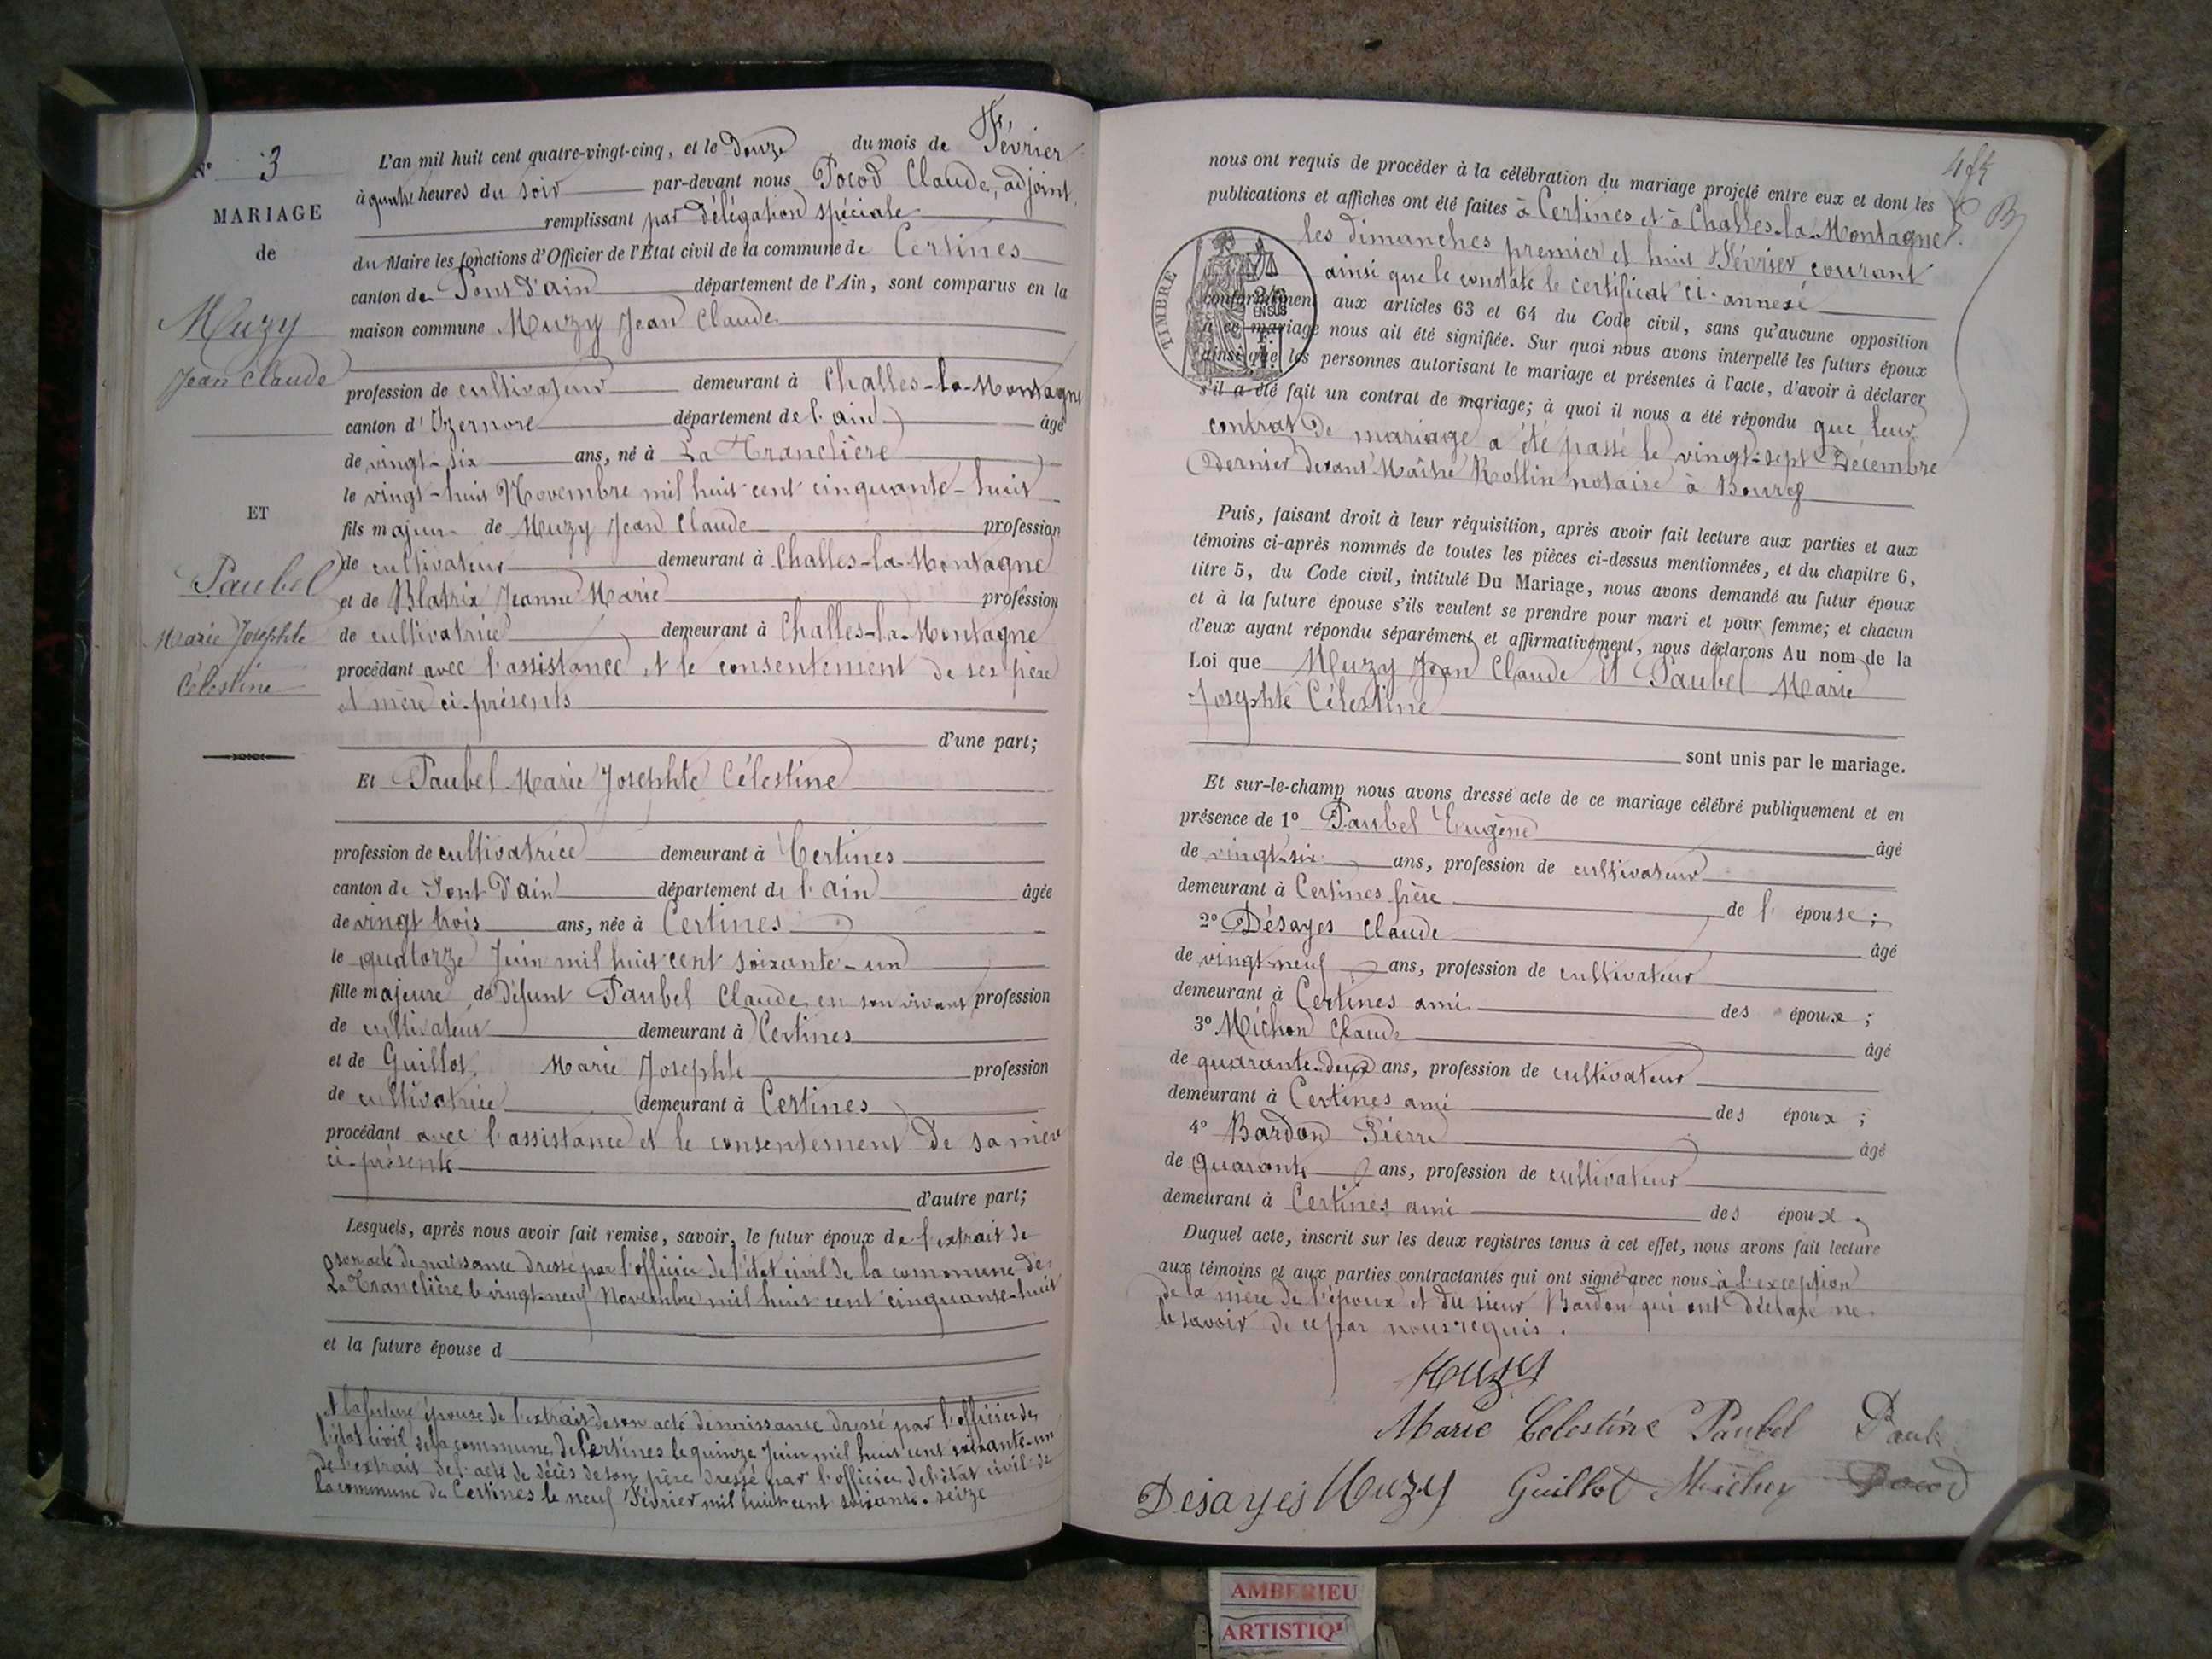 N° 3
MARIAGE
de
Muzy
Jean Claude
ET
Paubel
Marie Josephte
Célestine
L'an mil huit cent quatre-vingt-cinq, et le Douze du mois de Février
à quatre heures du soir par-devant nous Pocod Claude, adjoint,
remplissant par délégation spéciale
du Maire les fonctions d'Officier de l'État civil de la commune de Certines
canton de Pont d'ain département de l'Ain, sont comparus en la
maison commune Muzy Jean Claude
profession de cultivateur demeurant à Challes-la-Montagne
canton d'Izernore département de l'ain âgé
de vingt-six ans, né à La Tranclière
le vingt-huit Novembre mil huit cent cinquante-huit
fils majeur de Muzy Jean Claude profession
de cultivateur demeurant à Challes-la-Montagne
et de Blatrix Jeanne Marie profession
de cultivatrice demeurant à Challes-la-Montagne
procédant avec l'assistance et le consentement de ses père
et mère ci-présents
d'une part;
Et Paubel Marie Josephte Célestine
profession de cultivatrice demeurant à Certines
canton de Pont d'ain département de l'ain âgée
de vingt trois ans, née à Certines
le quatorze Juin mil huit cent soixante-un
fille majeure de défunt Paubel Claude en son vivant profession
de cultivateur demeurant à Certines
et de Guillot Marie Josephte profession
de cultivatrice demeurant à Certines
procédant avec l'assistance et le consentement de sa mère
ci-présente
d'autre part;
Lesquels, après nous avoir fait remise, savoir, le futur époux de l'extrait de
son acte de naissance dressé par l'officier de l'état civil de la commune de
La Tranclière le vingt-neuf Novembre mil huit cent cinquante-huit
et la future épouse d
et la future épouse de l'extrait de son acte de naissance dressé par l'officier de
l'état civil de la commune de Certines le quinze Juin mil huit cent soixante-un
de l'extrait de l'acte de décès de son père dressé par l'officier de l'état civil de
la commune de Certines le neuf Février mil huit cent soixante-seize
nous ont requis de procéder à la célébration du mariage projeté entre eux et dont les
publications et affiches ont été faites à Certines et à Challes-la-Montagne
les dimanches premier et huit Février courant
ainsi que le constate le certificat ci-annexé
TIMBRE
EN SUS
conformément aux articles 63 et 64 du Code civil, sans qu'aucune opposition
à ce mariage nous ait été signifiée. Sur quoi nous avons interpellé les futurs époux
ainsi que les personnes autorisant le mariage et présentes à l'acte, d'avoir à déclarer
s'il a été fait un contrat de mariage; à quoi il nous a été répondu que leur
contrat de mariage a été passé le vingt-sept Décembre
dernier devant Maître Rollin notaire à Bourg
Puis, faisant droit à leur réquisition, après avoir fait lecture aux parties et aux
témoins ci-après nommés de toutes les pièces ci-dessus mentionnées, et du chapitre 6,
titre 5, du Code civil, intitulé Du Mariage, nous avons demandé au futur époux
et à la future épouse s'ils veulent se prendre pour mari et pour femme; et chacun
d'eux ayant répondu séparément et affirmativement, nous déclarons Au nom de la
Loi que Muzy Jean Claude et Paubel Marie
Josephte Célestine
sont unis par le mariage.
Et sur-le-champ nous avons dressé acte de ce mariage célébré publiquement et en
présence de 1° Paubel Eugène âgé
de vingt-six ans, profession de cultivateur
demeurant à Certines frère de l'épouse;
2° Désayes Claude âgé
de vingt-neuf ans, profession de cultivateur
demeurant à Certines ami des époux;
3° Michon Claude âgé
de quarante-deux ans, profession de cultivateur
demeurant à Certines ami des époux;
4° Bardon Pierre âgé
de quarante ans, profession de cultivateur
demeurant à Certines ami des époux
Duquel acte, inscrit sur les deux registres tenus à cet effet, nous avons fait lecture
aux témoins et aux parties contractantes qui ont signé avec nous à l'exception
de la mère de l'époux et du sieur Bardon qui ont déclaré ne
le savoir de ce par nous requis.
Muzy
Marie Celestine Paubel
Desayes Muzy Guillot Michon Pocod
AMBERIEU
ARTISTIQ